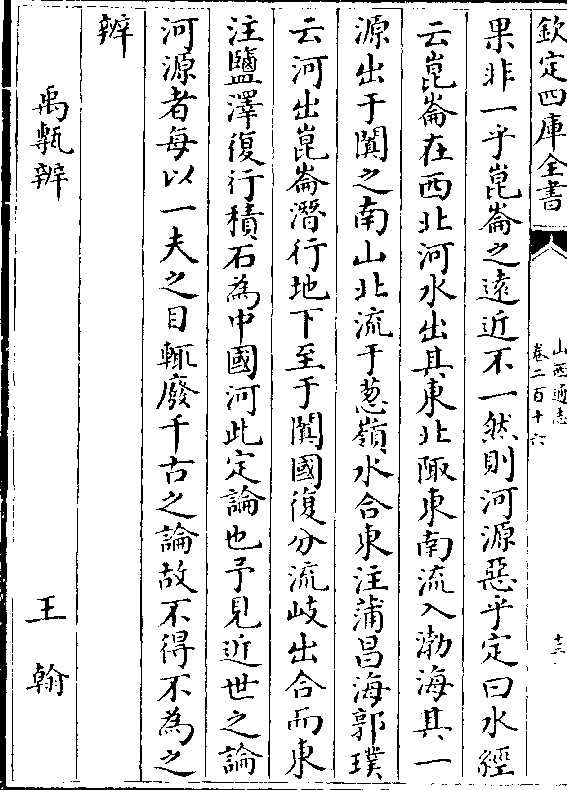 欽定四庫全書
山西通志
卷二百十六
十三
果非一乎崑崙之逺近不一然則河源惡乎定曰水經
云崑崙在西北河水出其東北陬東南流入渤海其一
源出于闐之南山北流于葱嶺水合東注蒲昌海郭璞
云河出崑崙潛行地下至于闐國復分流岐出合而東
注鹽澤復行積石為中國河此定論也予見近世之論
河源者每以一夫之目輒廢千古之論故不得不為之
辨
禹甎辨 王翰